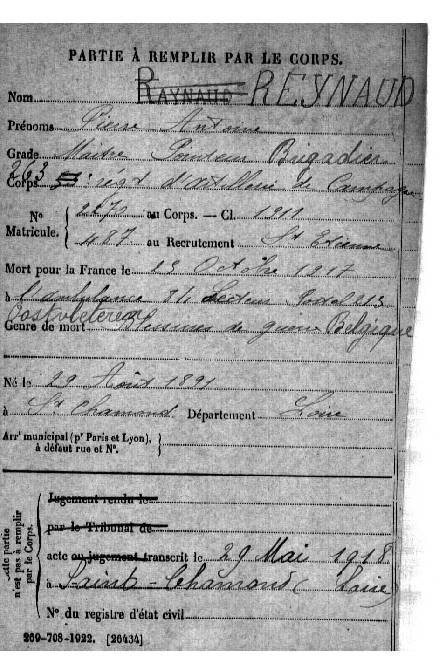 PARTIE À REMPLIR PAR LE CORPS.
Nom RAYNAUD REYNAUD
Prénoms Pierre Antoine
Grade Maitre Pointeur Brigadier
Corps 263 d'artillerie de Campagne
N° Matricule. { au Corps. — Cl. 1911
487 au Recrutement St Etienne
Mort pour la France le Octobre 1917
à l'ambulance Secteur
Oostvleteren
Genre de mort Blessures de guerre Belgique
Né le 29 Août 1891
à St Chamond Département Loire
Arrt municipal (pr Paris et Lyon), à défaut rue et N°. }
Cette partie n'est pas à remplir par le Corps.
Jugement rendu le
par le Tribunal de
acte ou jugement transcrit le 29 Mai 1918
à Saint-Chamond (Loire)
N° du registre d'état civil
269-708-1922. [26434]